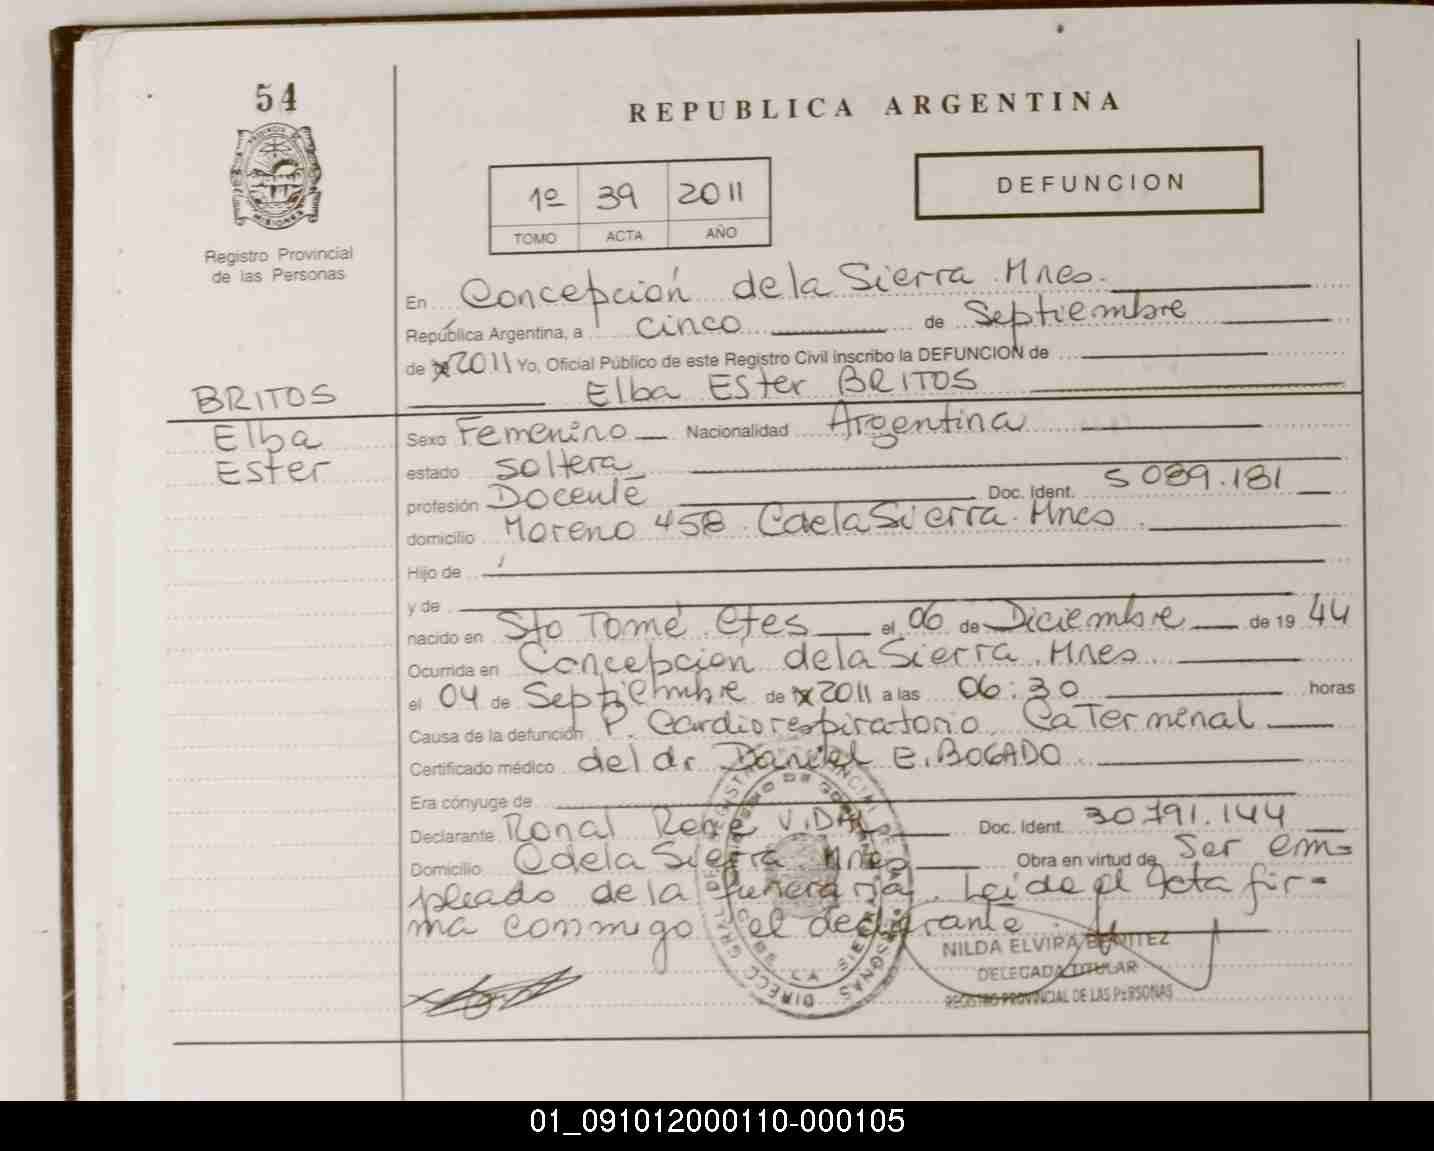 54
REPUBLICA ARGENTINA
1º 39 2011
TOMO ACTA AÑO
DEFUNCION
Registro Provincial
de las Personas
En Concepción de la Sierra Mnes.
República Argentina, a cinco de Septiembre
de 2011 Yo, Oficial Público de este Registro Civil inscribo la DEFUNCION de
Elba Ester BRITOS
BRITOS
Elba
Ester
Sexo Femenino Nacionalidad Argentina
estado soltera
profesión Docente Doc. Ident. 5 089.181
domicilio Moreno 458 C de la Sierra. Mnes
Hijo de
y de
nacido en Sto Tomé Ctes el 06 de Diciembre de 19 44
Ocurrida en Concepción de la Sierra. Mnes
el 04 de Septiembre de 2011 a las 06:30 horas
Causa de la defunción P. Cardiorespiratorio Ca Terminal
Certificado médico del dr Daniel E. BOGADO
Era cónyuge de
Declarante Ronal Rene VIDAL Doc. Ident. 30.791.144
Domicilio C de la Sierra Mnes Obra en virtud de Ser em=
pleado de la funeraria. Leida el Acta fir=
ma conmigo el declarante
NILDA ELVIRA BENITEZ
DELEGADA TITULAR
REGISTRO PROVINCIAL DE LAS PERSONAS
01_091012000110-000105